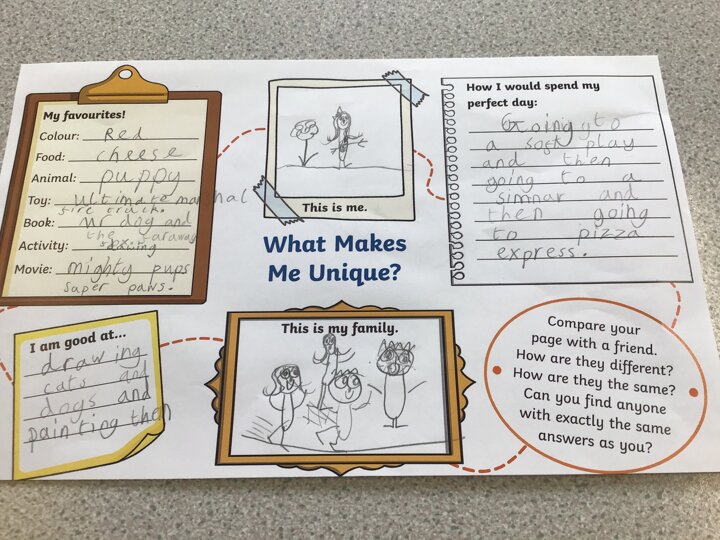 My favourites!
Colour: Red
Food: cheese
Animal: puppy
Toy: ultimate marshal
fire truck.
Book: Mr dog and
the faraway
Activity: drawing
Movie: mighty pups
super paws.
This is me.
What Makes
Me Unique?
How I would spend my
perfect day:
Going to
a soft play
and then
going to a
and
then going
to pizza
express.
I am good at...
drawing
cats and
dogs and
painting then
This is my family.
Compare your
page with a friend.
How are they different?
How are they the same?
Can you find anyone
with exactly the same
answers as you?